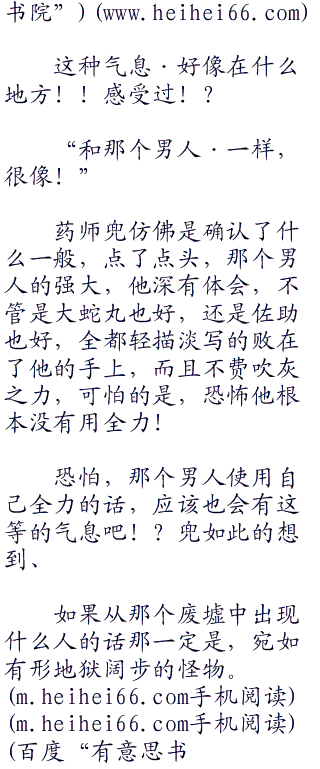 书院”)(www.heihei66.com)
这种气息·好像在什么
地方！！感受过！？
“和那个男人·一样，
很像！”
药师兜仿佛是确认了什
么一般，点了点头，那个男
人的强大，他深有体会，不
管是大蛇丸也好，还是佐助
也好，全都轻描淡写的败在
了他的手上，而且不费吹灰
之力，可怕的是，恐怖他根
本没有用全力！
恐怕，那个男人使用自
己全力的话，应该也会有这
等的气息吧！？兜如此的想
到、
如果从那个废墟中出现
什么人的话那一定是，宛如
有形地狱阔步的怪物。
(m.heihei66.com手机阅读)
(m.heihei66.com手机阅读)
(百度“有意思书